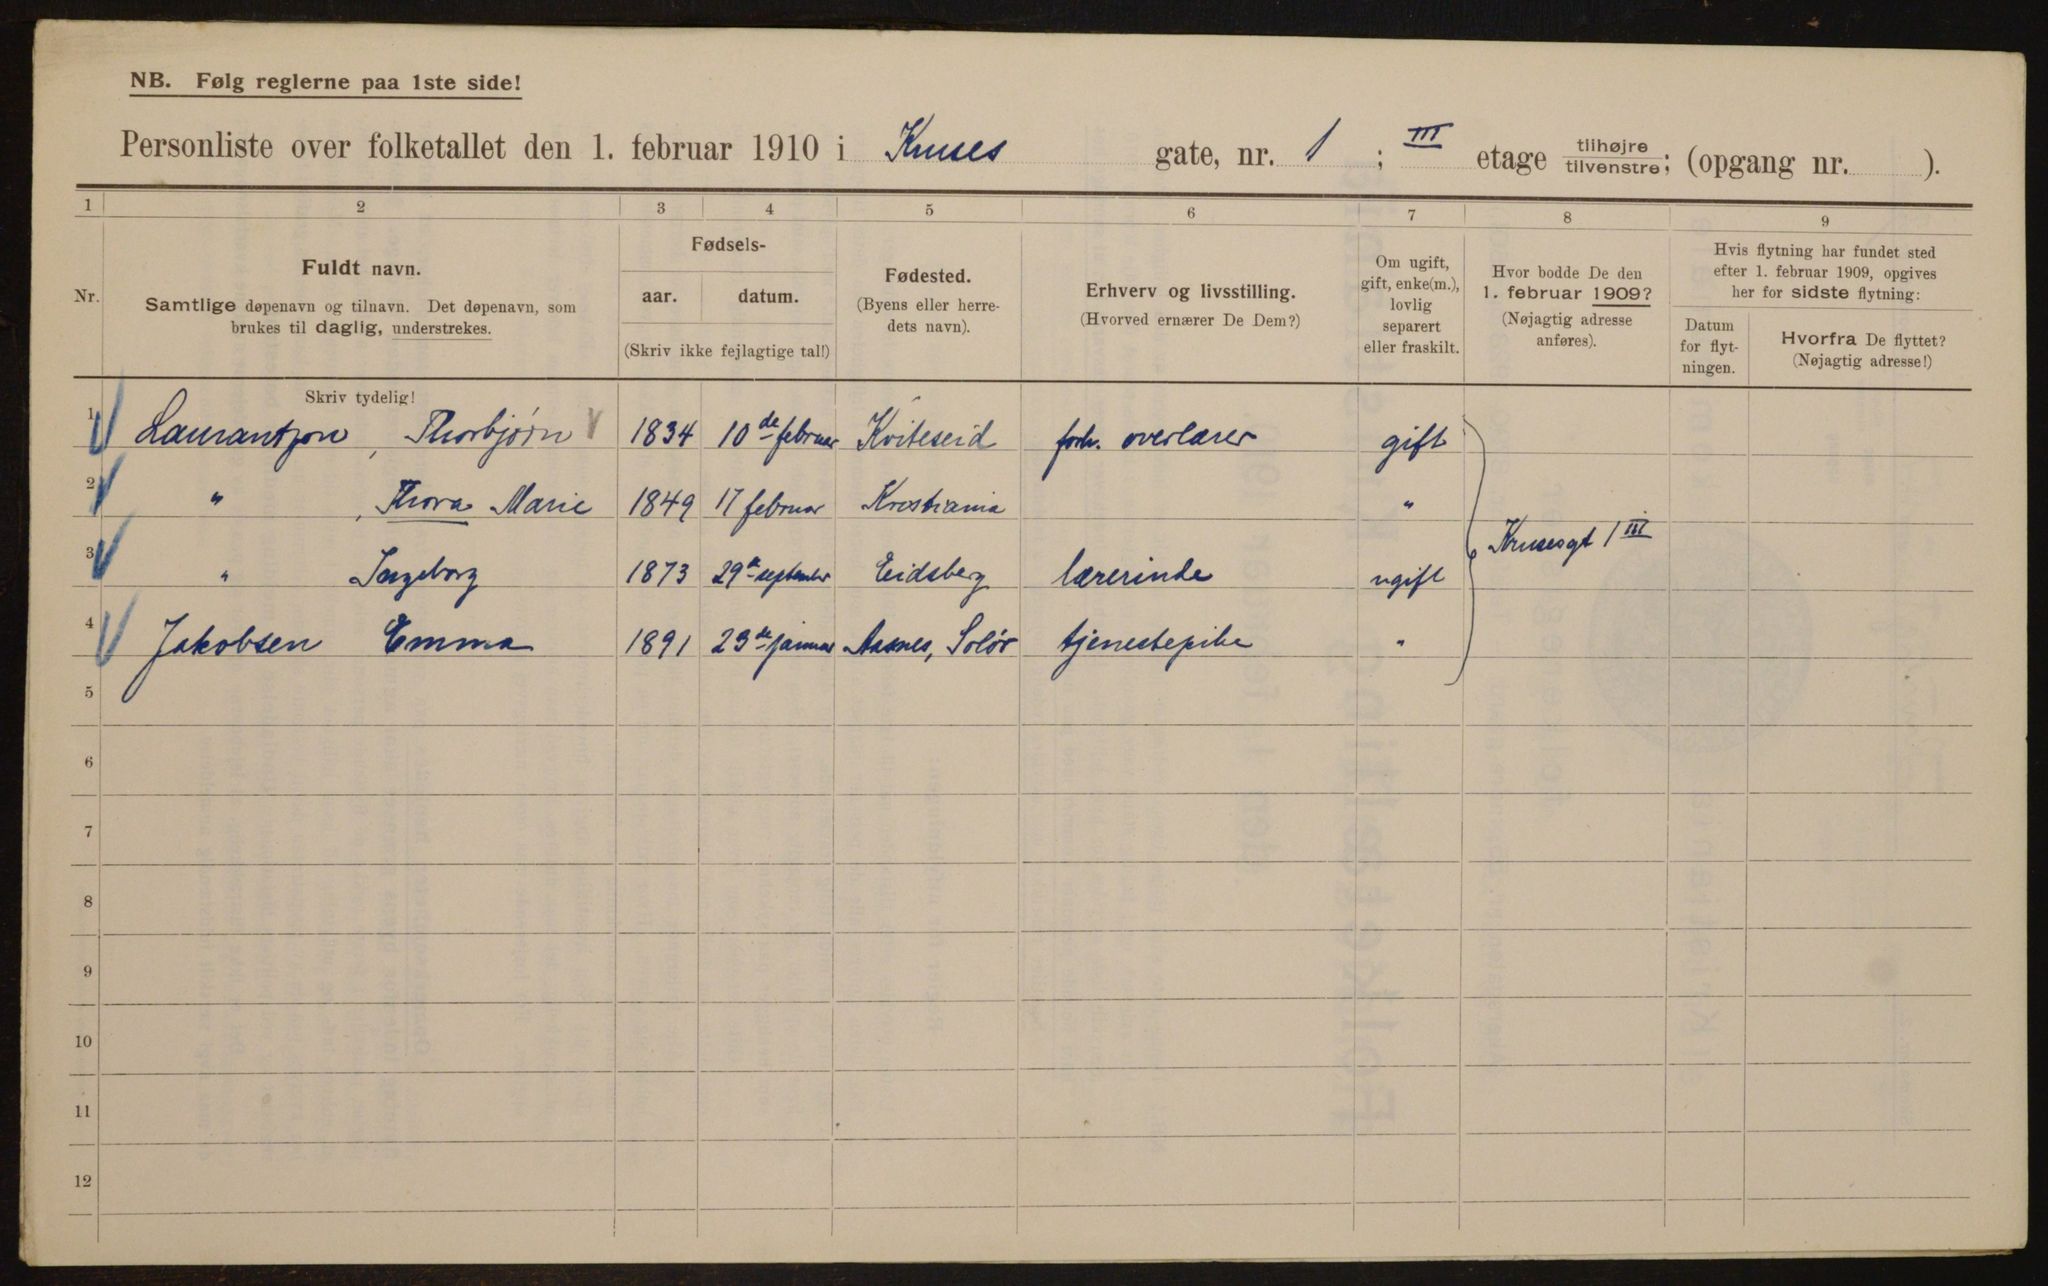 NB. Følg reglerne paa 1ste side!
Personliste over folketallet den 1. februar 1910 i Kruses gate, nr. 1 ; III etage tilhøjre tilvenstre; (opgang nr. ).
1 2 3 4 5 6 7 8 9
Nr.
Fuldt navn.
Samtlige døpenavn og tilnavn. Det døpenavn, som
brukes til daglig, understrekes.
Skriv tydelig!
Fødsels-
aar. datum.
(Skriv ikke fejlagtige tal!)
Fødested.
(Byens eller herre-
dets navn).
Erhverv og livsstilling.
(Hvorved ernærer De Dem?)
Om ugift,
gift, enke(m.),
lovlig
separert
eller fraskilt.
Hvor bodde De den
1. februar 1909?
(Nøjagtig adresse
anføres).
Hvis flytning har fundet sted
efter 1. februar 1909, opgives
her for sidste flytning:
Datum
for flyt-
ningen.
Hvorfra De flyttet?
(Nøjagtig adresse!)
1 Laurantzon, Thorbjørn 1834 10de februar Kviteseid forh. overlærer gift
2 " , Thora Marie 1849 17 februar Kristiania "
Krusesgt 1 III
3 " Ingeborg 1873 29de september Eidsberg lærerinde ugift
4 Jakobsen Emma 1891 23de januar Aasnes, Solør tjenestepike "
5
6
7
8
9
10
11
12